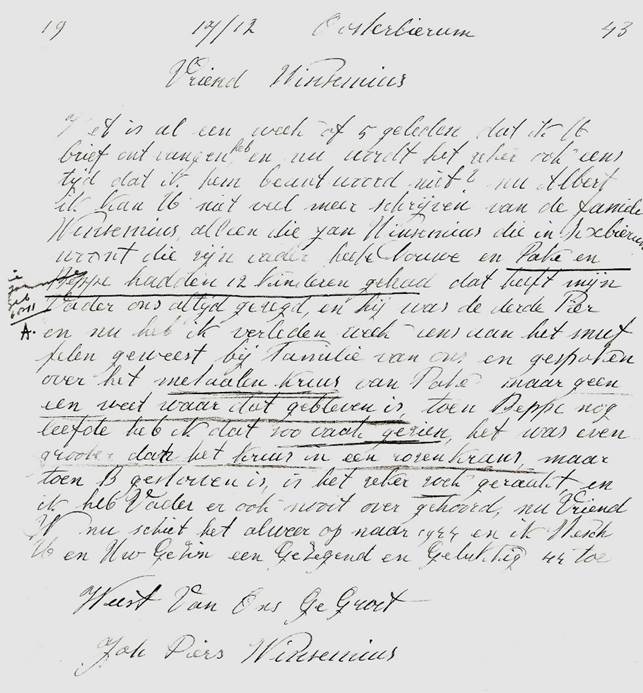 19 17/12 Oosterbierum 43
Vriend Winsemius
Het is al een week of 5 geleden dat ik U
brief ontvangen heb en nu wordt het zeker ook eens
tijd dat ik hem beantwoord niet? nu Albert
ik kan U niet veel meer schrijven van de familie
Winsemius, alleen die Jan Winsemius die in Sexbierum
woont die zijn vader heete Douwe en Pake en
Beppe hadden 12 kinderen gehad dat heeft mijn
Vader ons altyd gezegd, en hij was de derde Pier
A.
en nu heb ik verleden week eens aan het snuf
felen geweest bij Familie van ons en gesproken
over het metaalen kruis van Pake maar geen
een weet waar dat gebleven is, toen Beppe nog
leefote heb ik dat zoo vaak gezien, het was even
grooter dan het kruis in een rozenkrans, maar
toen B gestorven is, is het zeker zoek geraakt en
ik heb Vader er ook nooit over gehoord, nu Vriend
W nu schiet het alweer op naar 1944 en ik Wensch
U en Uw Gezin een Gezegend en Gelukkig 44 toe
Weest Van Ons GeGroet
Joh Piers Winsemius